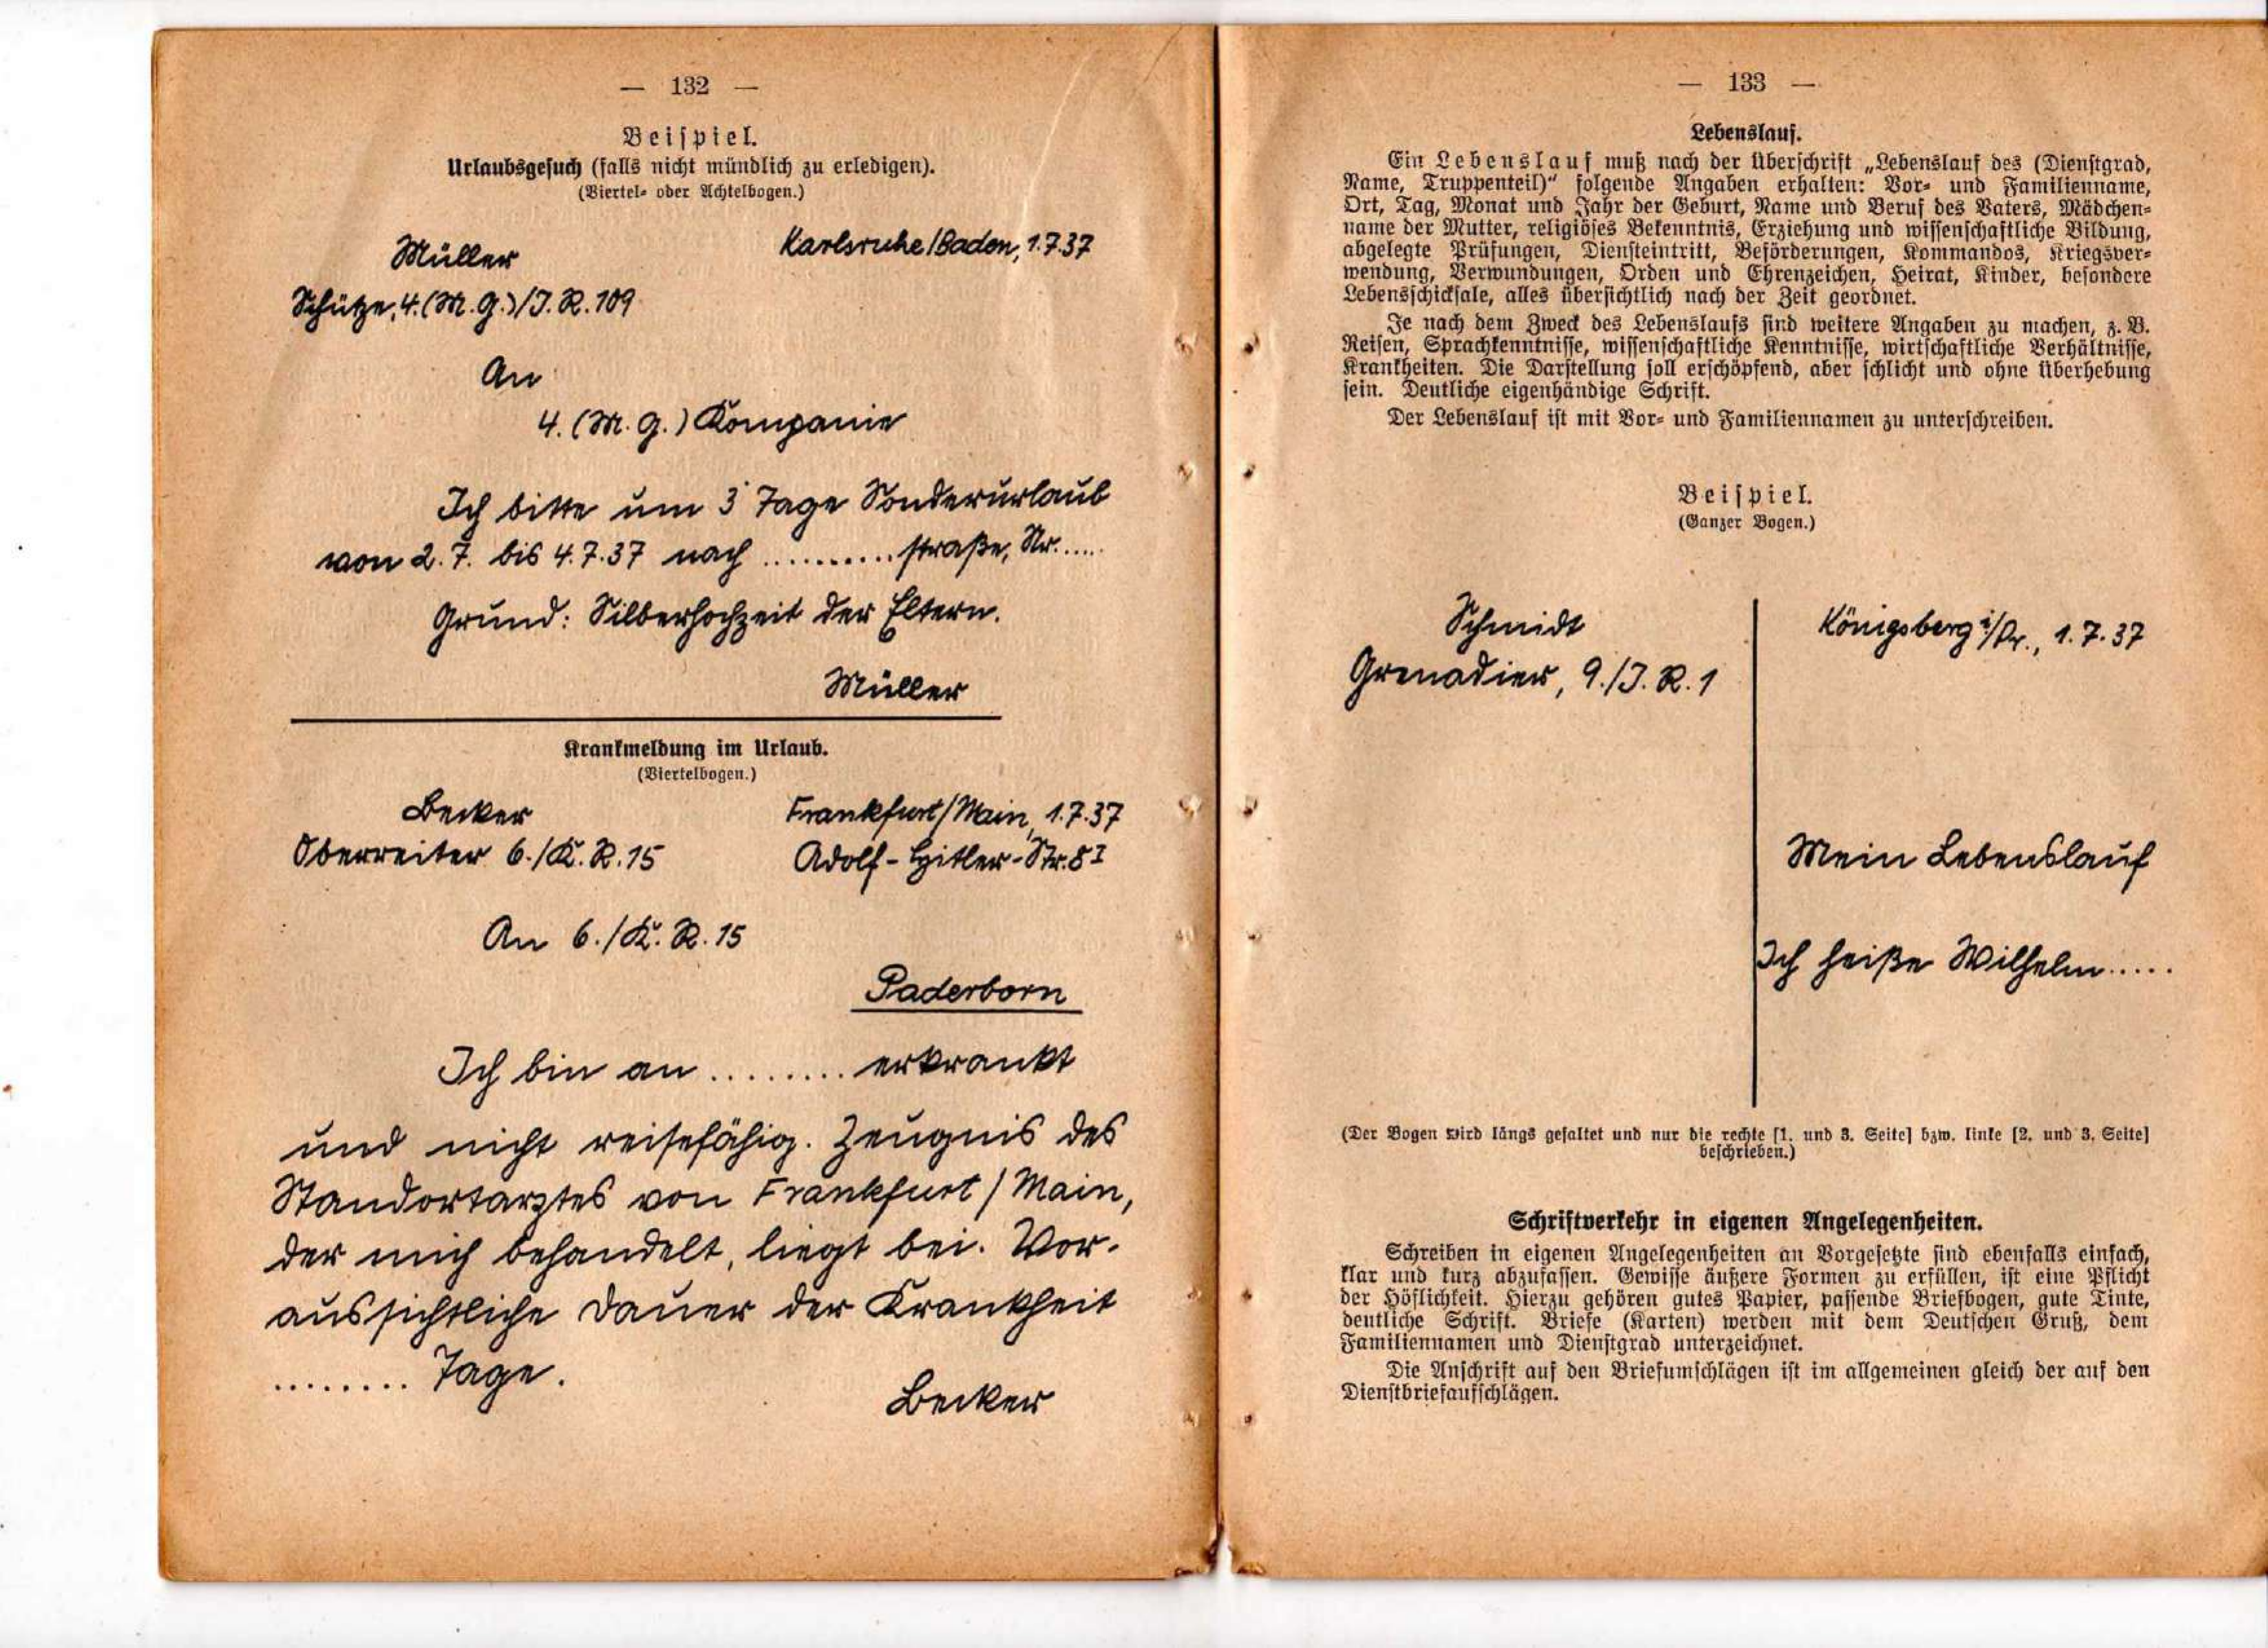 — 132 —
Beispiel.
Urlaubsgesuch (falls nicht mündlich zu erledigen).
(Viertel- oder Achtelbogen.)
Müller
Karlsruhe/Baden, 1.7.37
Schütze, 4.(M.G.)/J.R.109
An
4. (M.G.) Kompanie
Ich bitte um 3 Tage Sonderurlaub
von 2.7. bis 4.7.37 nach ..........straße, Nr.....
Grund: Silberhochzeit der Eltern.
Müller
Krankmeldung im Urlaub.
(Viertelbogen.)
Becker
Frankfurt/Main, 1.7.37
Oberreiter 6./K.R.15
Adolf-Hitler-Str.8 I
An 6./K.R.15
Paderborn
Ich bin an ........ erkrankt
und nicht reisefähig. Zeugnis des
Standortarztes von Frankfurt/Main,
der mich behandelt, liegt bei. Vor-
aussichtliche Dauer der Krankheit
........ Tage.
Becker
— 133 —
Lebenslauf.
Ein Lebenslauf muß nach der Überschrift „Lebenslauf des (Dienstgrad,
Name, Truppenteil)“ folgende Angaben erhalten: Vor- und Familienname,
Ort, Tag, Monat und Jahr der Geburt, Name und Beruf des Vaters, Mädchen-
name der Mutter, religiöses Bekenntnis, Erziehung und wissenschaftliche Bildung,
abgelegte Prüfungen, Diensteintritt, Beförderungen, Kommandos, Kriegsver-
wendung, Verwundungen, Orden und Ehrenzeichen, Heirat, Kinder, besondere
Lebensschicksale, alles übersichtlich nach der Zeit geordnet.
Je nach dem Zweck des Lebenslaufs sind weitere Angaben zu machen, z. B.
Reisen, Sprachkenntnisse, wissenschaftliche Kenntnisse, wirtschaftliche Verhältnisse,
Krankheiten. Die Darstellung soll erschöpfend, aber schlicht und ohne Überhebung
sein. Deutliche eigenhändige Schrift.
Der Lebenslauf ist mit Vor- und Familiennamen zu unterschreiben.
Beispiel.
(Ganzer Bogen.)
Schmidt
Königsberg i/Pr., 1.7.37
Grenadier, 9./J.R.1
Mein Lebenslauf
Ich heiße Wilhelm.....
(Der Bogen wird längs gefaltet und nur die rechte [1. und 3. Seite] bzw. linke [2. und 3. Seite]
beschrieben.)
Schriftverkehr in eigenen Angelegenheiten.
Schreiben in eigenen Angelegenheiten an Vorgesetzte sind ebenfalls einfach,
klar und kurz abzufassen. Gewisse äußere Formen zu erfüllen, ist eine Pflicht
der Höflichkeit. Hierzu gehören gutes Papier, passende Briefbogen, gute Tinte,
deutliche Schrift. Briefe (Karten) werden mit dem Deutschen Gruß, dem
Familiennamen und Dienstgrad unterzeichnet.
Die Anschrift auf den Briefumschlägen ist im allgemeinen gleich der auf den
Dienstbriefaufschlägen.